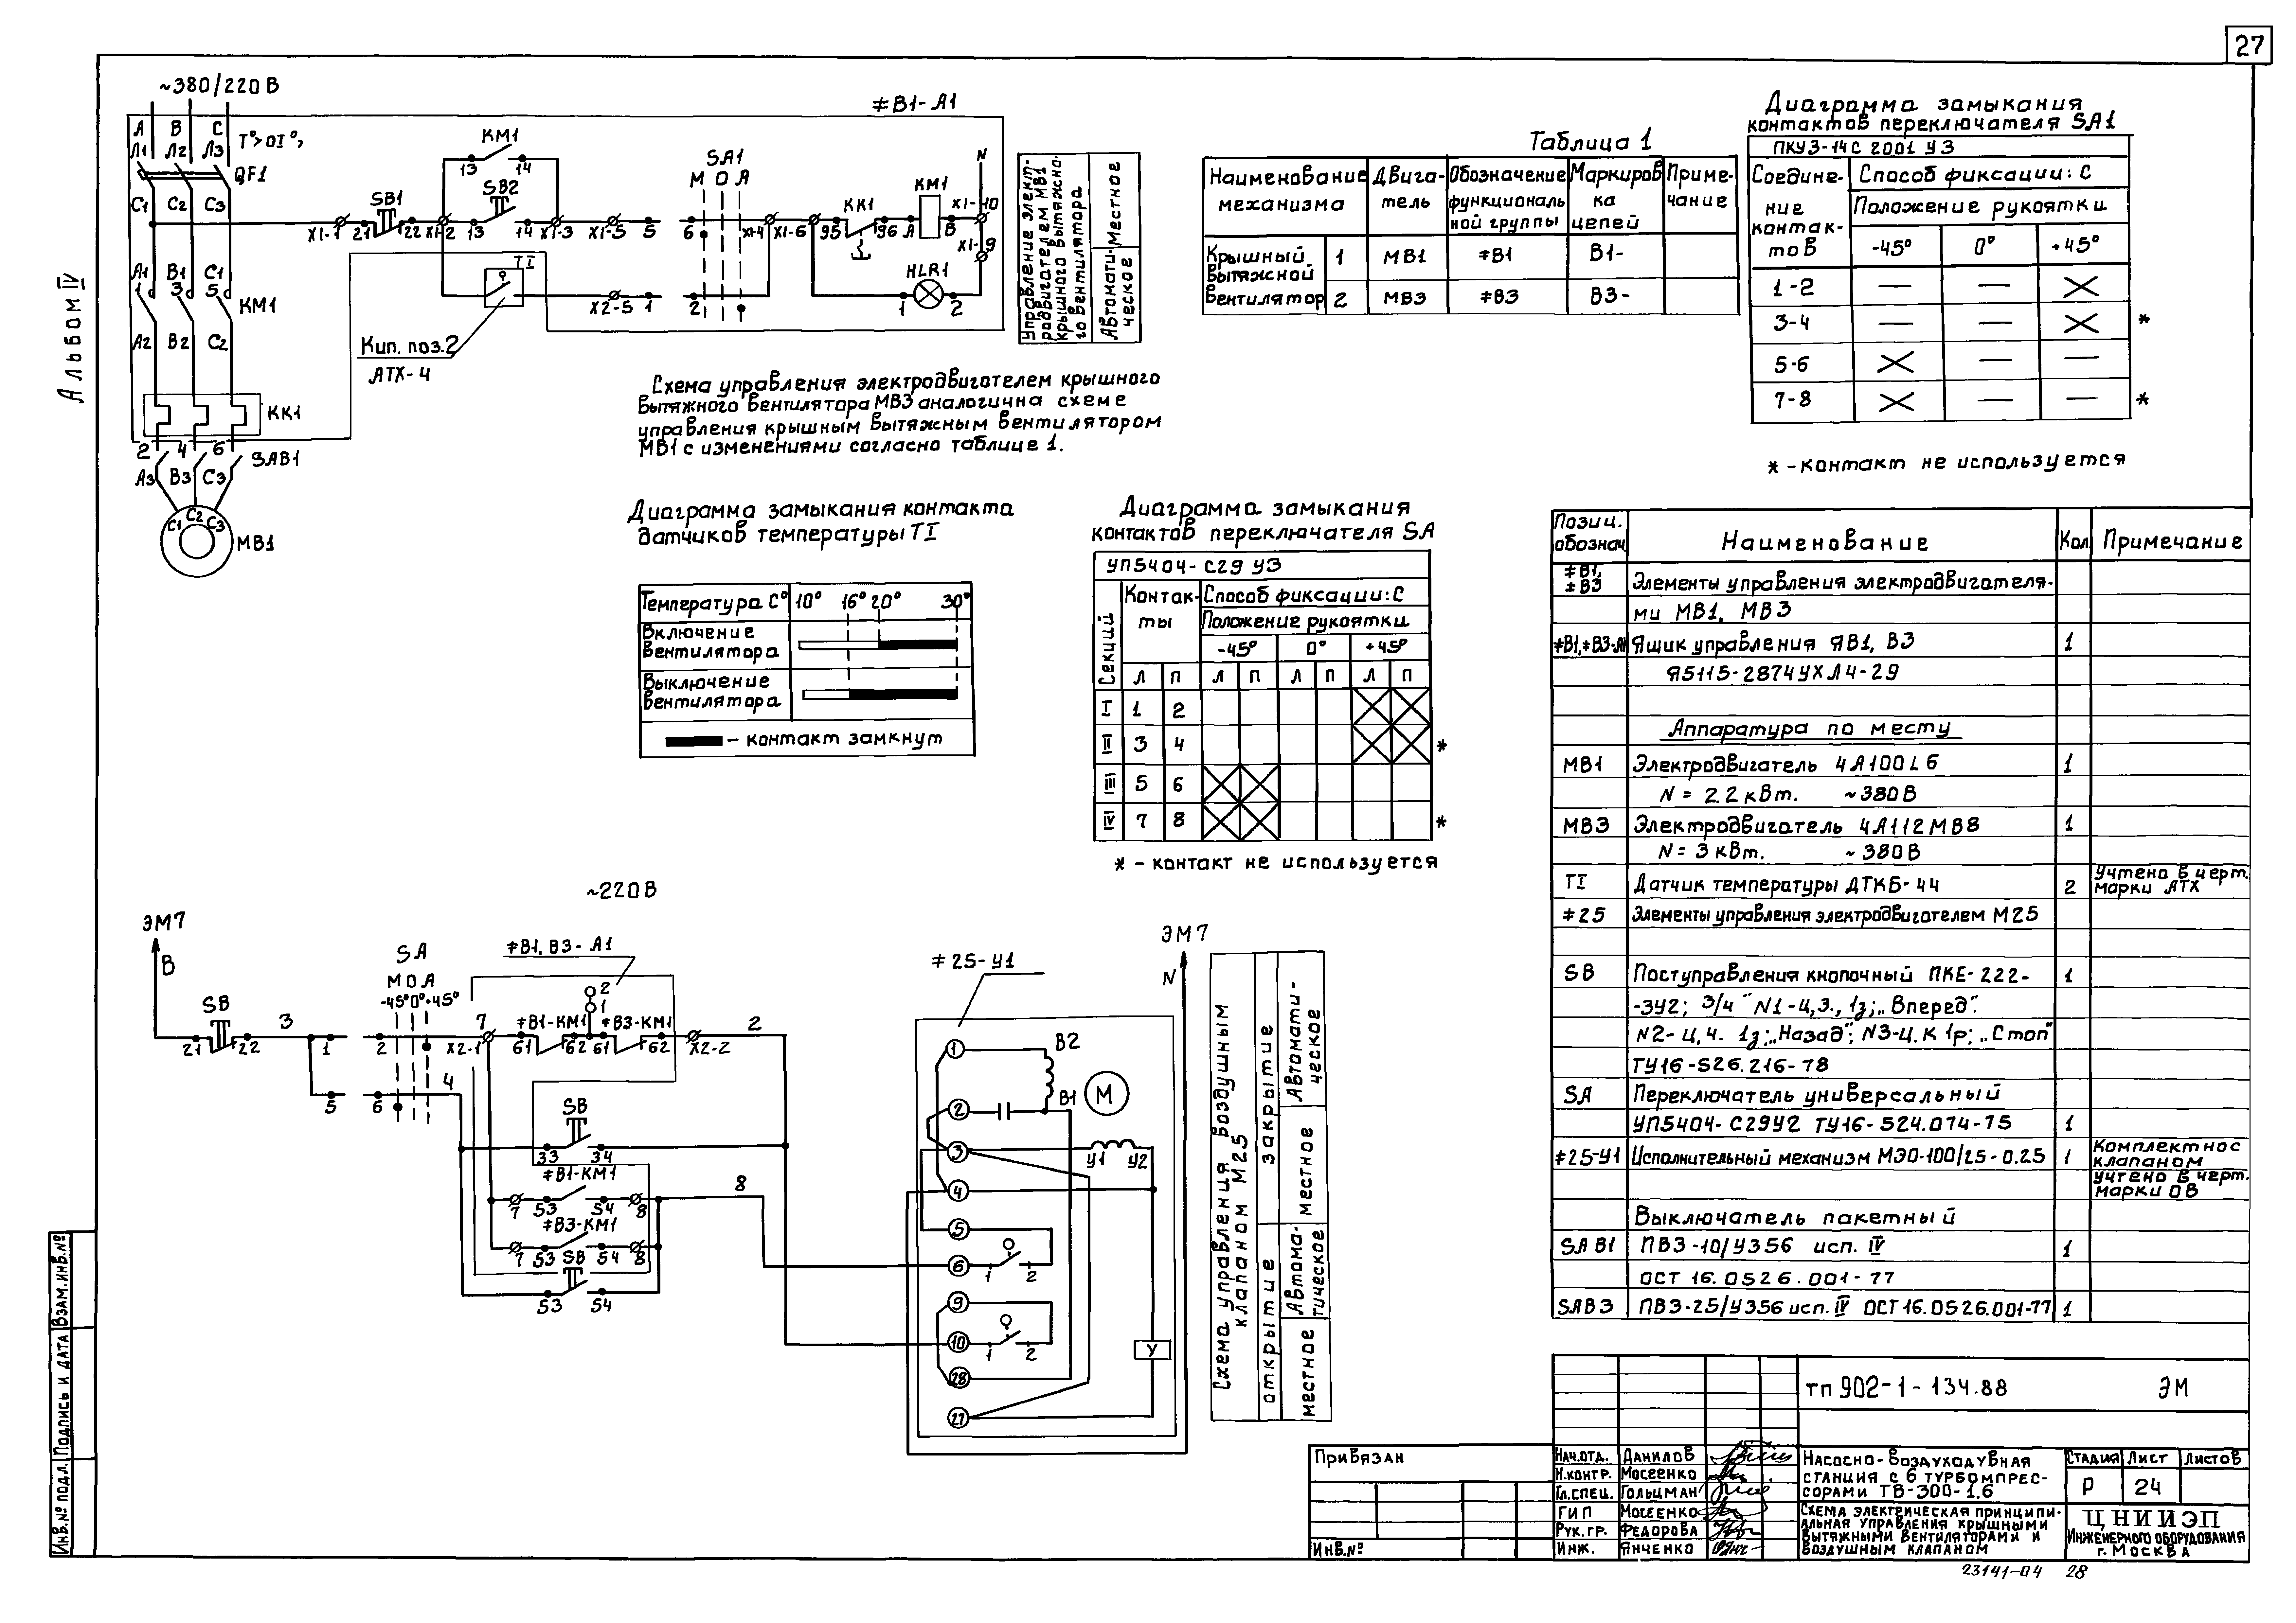 27
Альбом IV
~380/220 В
А В С
Л1 Л2 Л3
Т°>
QF1
С1 С2 С3
А1 В1 С1
1 3 5
КМ1
А2 В2 С2
КК1
2 4 6
SAB1
А3 В3 С3
С1 С2 С3
МВ1
≠В1-А1
КМ1
13 14
SB1
21 22
Х1-1
Х1-2
SB2
13 14
Х1-3
Х1-5
5
SA1
М О А
6
Х1-4
Х1-6
КК1
95 96
КМ1
А В
N
Х1-10
Х1-9
HLR1
1 2
TI
Х2-5
1 2
Кип. поз.2
АТХ-4
Управление элект-
родвигателем МВ1
крышного вытяжно-
го вентилятора
Местное
Автомати-
ческое
Схема управления электродвигателем крышного
вытяжного вентилятора МВ3 аналогична схеме
управления крышным вытяжным вентилятором
МВ1 с изменениями согласно таблице 1.
Таблица 1
Наименование механизма | Двига-тель | Обозначение функциональ ной группы | Маркиров ка цепей | Приме-чание
Крышный вытяжной вентилятор | 1 | МВ1 | ≠В1 | В1-
2 | МВ3 | ≠В3 | В3-
Диаграмма замыкания
контактов переключателя SA1
ПКУ3-14С 2001 У3
Соедине-ние контак-тов | Способ фиксации: С
Положение рукоятки
-45° 0° +45°
1-2 — — X
3-4 — — X *
5-6 X — —
7-8 X — — *
* - контакт не используется
Диаграмма замыкания контакта
датчиков температуры TI
Температура С° 10° 16° 20° 30°
Включение
вентилятора
Выключение
вентилятора
- контакт замкнут
Диаграмма замыкания
контактов переключателя SA
УП5404-С29 У3
Секций | Контак-ты | Способ фиксации: С
Положение рукоятки
-45° 0° +45°
Л П Л П Л П Л П
I 1 2
II 3 4 *
III 5 6
IV 7 8 *
* - контакт не используется
~220В
ЭМ7
В
SB
21 22
3
1 2
SA
М О А
-45° 0° +45°
5 6
4
≠В1, В3-А1
7
Х2-1
≠В1-КМ1
61 62
2
1
≠В3-КМ1
61 62
Х2-2
2
SB
33 34
≠В1-КМ1
7 53 54 8
≠В3-КМ1
7 53 54 8
SB
53 54
8
≠25-У1
ЭМ7
N
1
В2
2
В1
М
3
У1 У2
4
5
6
1 2
9
10
1 2
28
27
У
Схема управления воздушным
клапаном М25
закрытие
открытие
Автомати-
ческое
местное
Автома-
тическое
местное
Позиц. обознач. | Наименование | Кол | Примечание
≠В1, ≠В3 | Элементы управления электродвигателя-
ми МВ1, МВ3
≠В1,≠В3-А1 | Ящик управления ЯВ1, В3 | 1
Я5115-2874УХЛ4-29
Аппаратура по месту
МВ1 | Электродвигатель 4А100L6 | 1
N = 2.2 кВт. ~380В
МВ3 | Электродвигатель 4А112МВ8 | 1
N = 3 кВт. ~380В
TI | Датчик температуры ДТКБ-44 | 2 | Учтено в черт. марки АТХ
≠25 | Элементы управления электродвигателем М25
SB | Пост управления кнопочный ПКЕ-222- | 1
-3У2; 3/4" N1-Ц,3., 1з; „Вперед".
N2-Ц,4. 1з; „Назад"; N3-Ц. К 1р; „Стоп"
ТУ16-526.216-78
SA | Переключатель универсальный
УП5404-С29У2 ТУ16-524.074-75 | 1
≠25-У1 | Исполнительный механизм МЭО-100/25-0.25 | 1 | Комплектно с клапаном
учтено в черт. марки ОВ
Выключатель пакетный
SAB1 | ПВ3-10/У356 исп. IV | 1
ОСТ 16.0526.001-77
SAB3 | ПВ3-25/У356 исп. IV ОСТ 16.0526.001-77 | 1
тп 902-1-134.88 ЭМ
Привязан
Инв.№
Нач.отд. Данилов
Н.контр. Мосеенко
Гл.спец. Гольцман
ГИП Мосеенко
Рук.гр. Федорова
Инж. Янченко
Насосно-воздуходувная
станция с 6 турбомпрес-
сорами ТВ-300-1.6
Стадия Лист Листов
Р 24
Схема электрическая принципи-
альная управления крышными
вытяжными вентиляторами и
воздушным клапаном
ЦНИИЭП
Инженерного оборудования
г. Москва
23141-04 28
Инв.№ подл. Подпись и дата Взам.инв.№